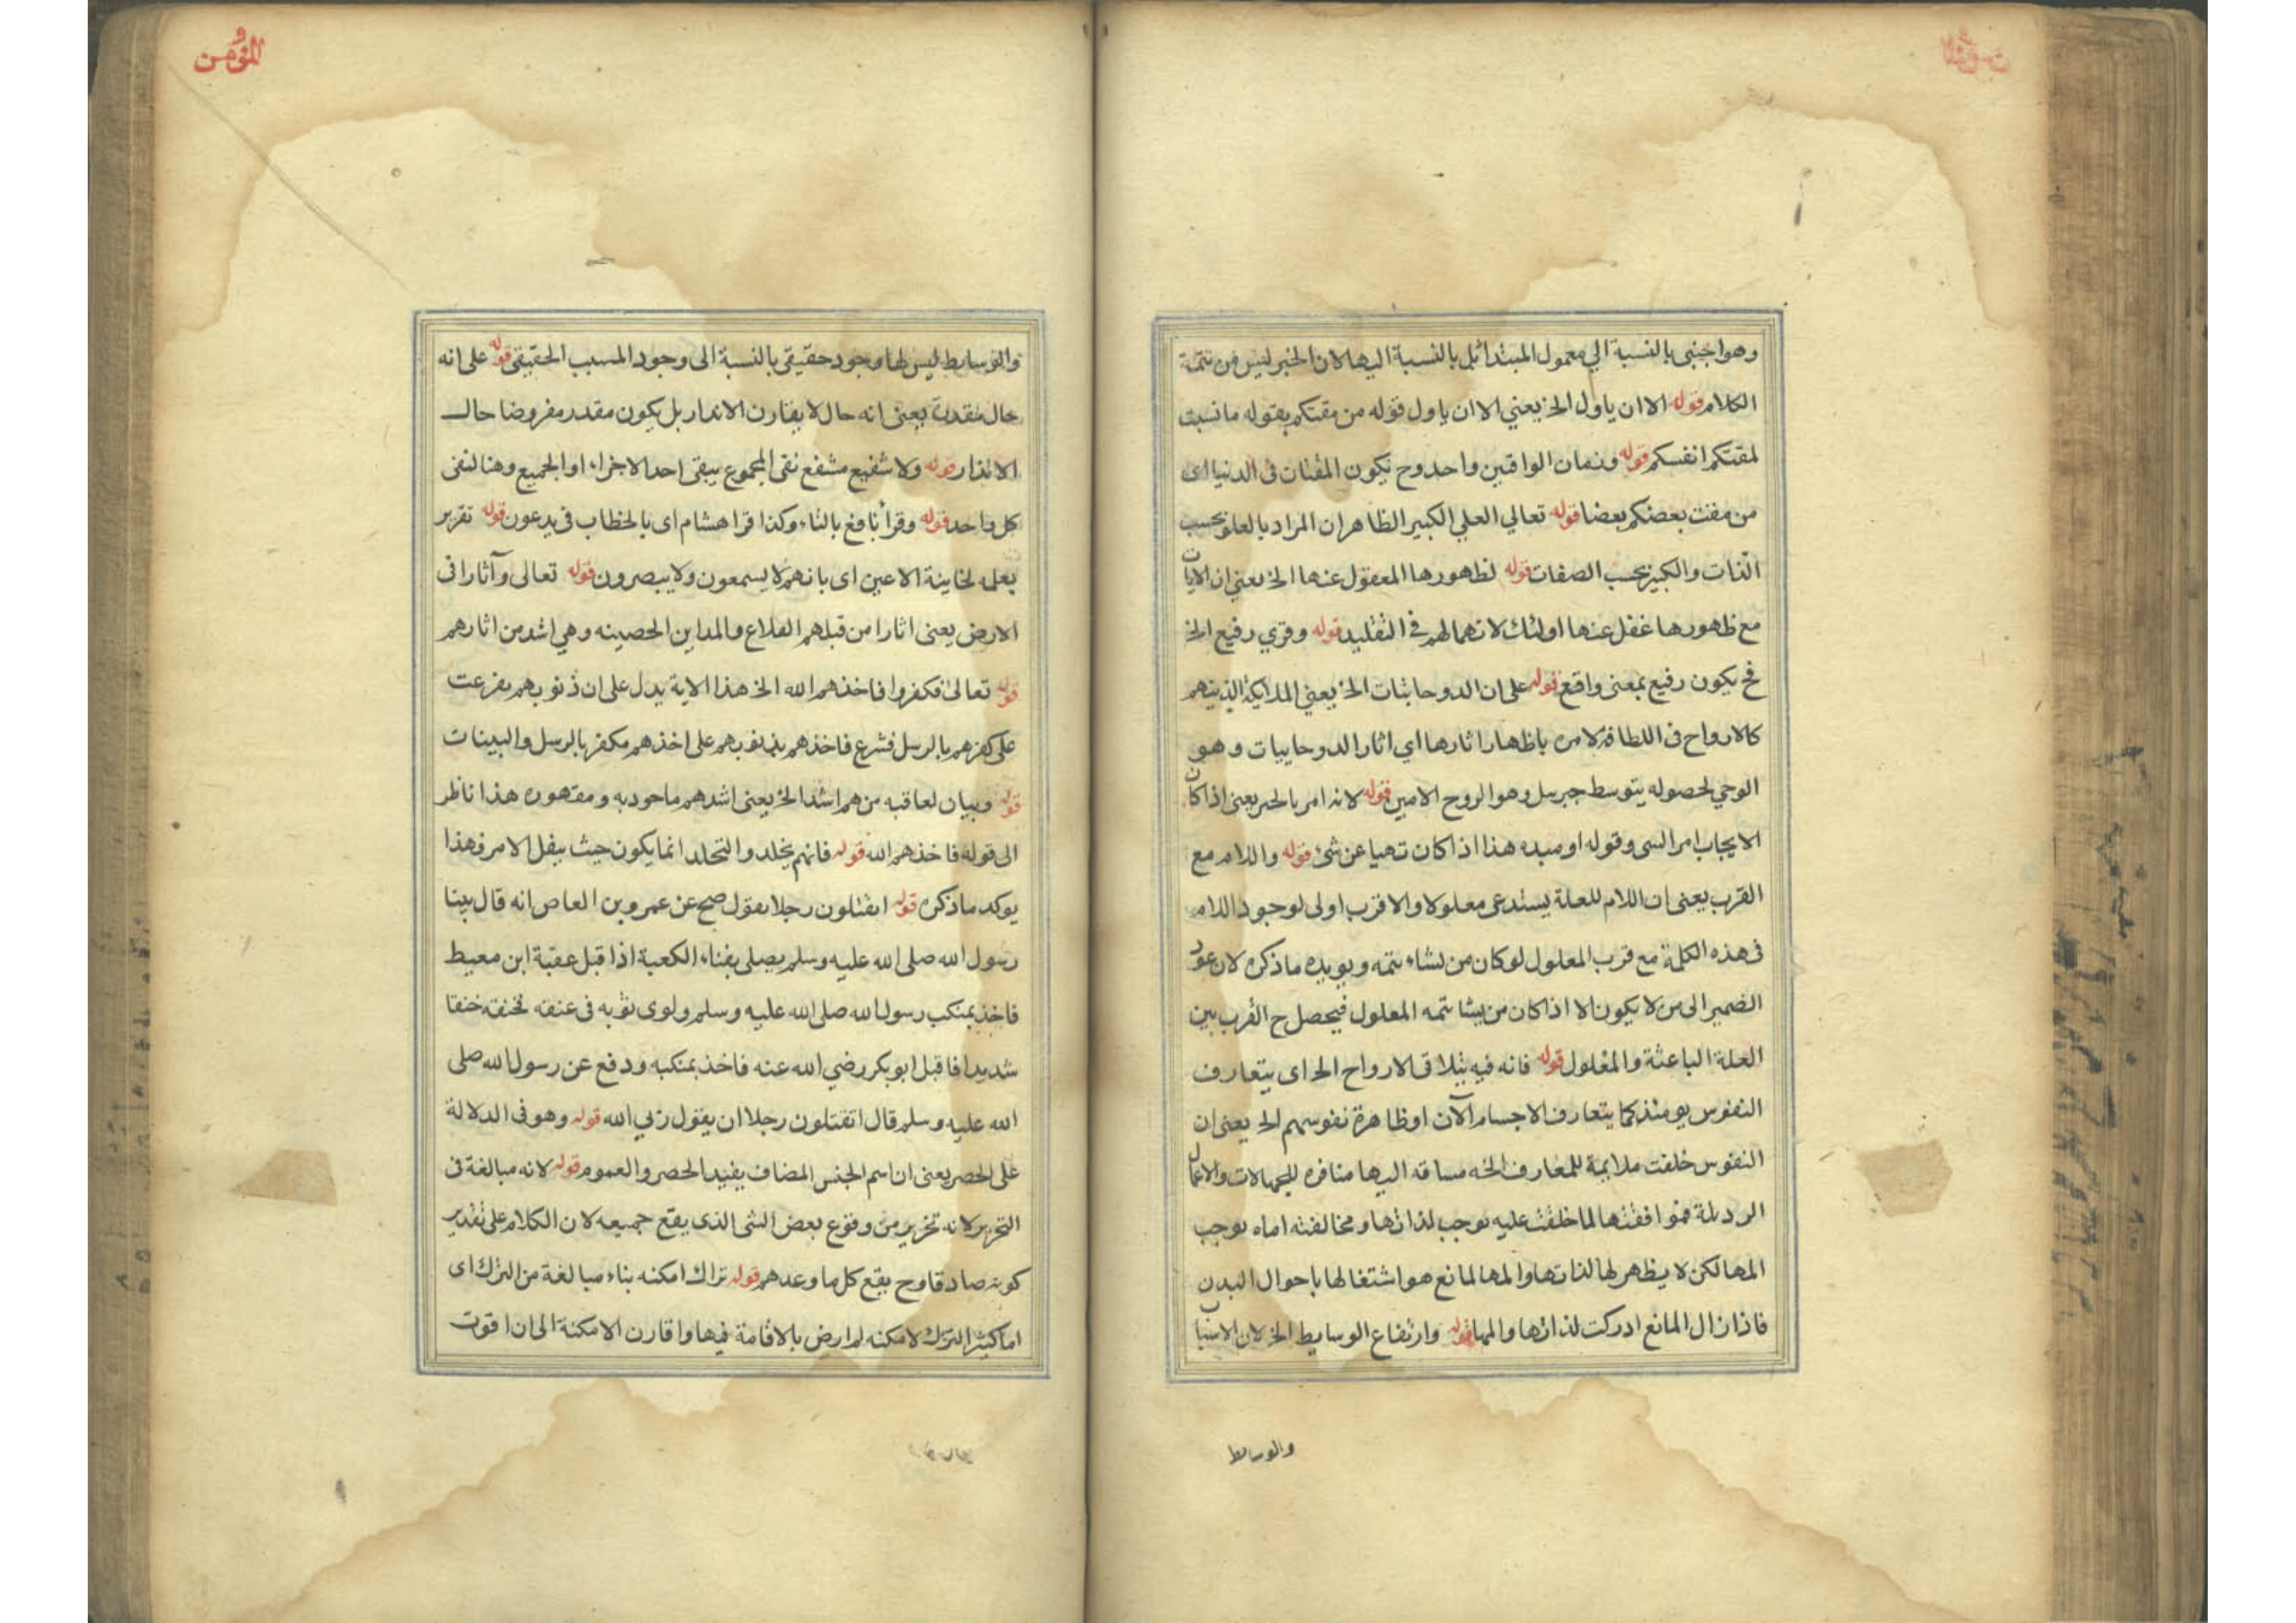 وهو اجنبى بالنسبة الى معمول المبتدا بل بالنسبة اليها لان الخبر ليس من تتمة
الكلام قوله الا ان ياول الخ يعني الا ان ياول قوله من مقتكم بقوله ما نسبت
لمقتكم انفسكم قوله وزمان الواقين واحد وح تكون المقتان فى الدنيا اى
من مقت بعضكم بعضا قوله تعالي العلي الكبير الظاهر ان المراد بالعلو بحسب
الذات والكبير بحسب الصفات قوله لظهورها المعقول عنها الخ يعني ان الايات
مع ظهورها غفل عنها اولئك لانهمالهم فى التقليد قوله وقري رفيع الخ
فح يكون رفيع بمعنى واقع قوله على ان الدوحانيات الخ يعني الملايكة الذينهم
كالارواح فى اللطافة لامره باظهار اثارها اي اثار الدوحانيات وهو
الوحي لحصوله بتوسط جبريل وهو الروح الامين قوله لانه امر بالخير يعنى اذا كان
الايجاب امر السى وقوله او مبده هذا اذا كان نهيا عن شئ قوله واللام مع
القرب يعنى ان اللام للعلة يستدعى معلولا والاقرب اولى لوجود اللام
فى هذه الكلمة مع قرب المعلول لوكان من لشاء تتمه ويويده ما ذكره لان عود
الضمير الى من لا يكون الا اذا كان من يشا تتمه المعلول فيحصل ح القرب بين
العلة الباعثة والمعلول قوله فانه فيه يتلاقى الارواح الخ اى يتعارف
النفوس يومئذ كما يتعارف الاجسام الآن او ظاهرة نفوسهم الخ يعنى ان
النفوس خلقت ملايمة للمعارف الخه مساقه اليها منافره للجهالات والاعمال
الرديلة فموافقتها لما خلقت عليه توجب لذاتها ومخالفته اماه توجب
المها لكن لا يظهر لها لذاتها والمها لمانع هو اشتغالها باحوال البدن
فاذا زال المانع ادركت لذاتها والمها قوله وارتفاع الوسايط الخ لان الاسباب
والوسايط
المؤمن
والوسايط ليس لها وجود حقيقى بالنسبة الى وجود المسبب الحقيقى قوله على انه
حال مقدرة يعنى انه حال لا يقارن الانذار بل يكون مقدر مفروضا حال
الانذار قوله ولا شفيع مشفع نفى المجموع يبقى احد الاجزاء او الجميع وهنا لنفى
كل واحد قوله وقرأ نافع بالتاء وكذا قرا هشام اى بالخطاب فى يدعون قوله تقرير
يعلمه لخاينة الاعين اى بانهم لا يسمعون ولا يبصرون قوله تعالى وآثارا فى
الارض يعنى اثارا من قبلهم القلاع والمداين الحصينه وهي اشد من اثارهم
قوله تعالى فكفروا فاخذهم الله الخ هذا الاية يدل على ان ذنوبهم يفرعت
على كفرهم بالرسل فشرع فاخذهم بذنوبهم على اخذهم مكفر بالرسل والبينات
قوله وبيان لعاقبه من هم اشد الخ يعنى اشدهم ماخوذ به ومقهوره هذا ناظر
الى قوله فاخذهم الله قوله فانهم يخلد والتخلد انما يكون حيث بيفل الامر فهذا
يوكد ما ذكره قوله اتقتلون رجلا يقول صح عن عمرو بن العاص انه قال بينا
رسول الله صلى الله عليه وسلم يصلى بفناء الكعبة اذا قبل عقبة ابن معيط
فاخذ بمنكب رسول الله صلى الله عليه وسلم ولوى ثوبه فى عنقه فخنقه خنقا
شديدا فاقبل ابو بكر رضي الله عنه فاخذ بمنكبه ودفع عن رسول الله صلى
الله عليه وسلم قال اتقتلون رجلا ان يقول ربي الله قوله وهو فى الدلالة
على الحصر يعنى ان اسم الجنس المضاف يفيد الحصر والعموم قوله لانه مبالغة فى
التحزير لانه تحزير من وقوع بعض الشى الذى يقع جميعه لان الكلام على تقدير
كونه صادقا وح يقع كل ما وعدهم قوله تراك امكنه بناء مبالغة من الترك اى
اما كثير الترك لامكنه لم ارض بالاقامة فيها وافارق الامكنة الى ان اقوت